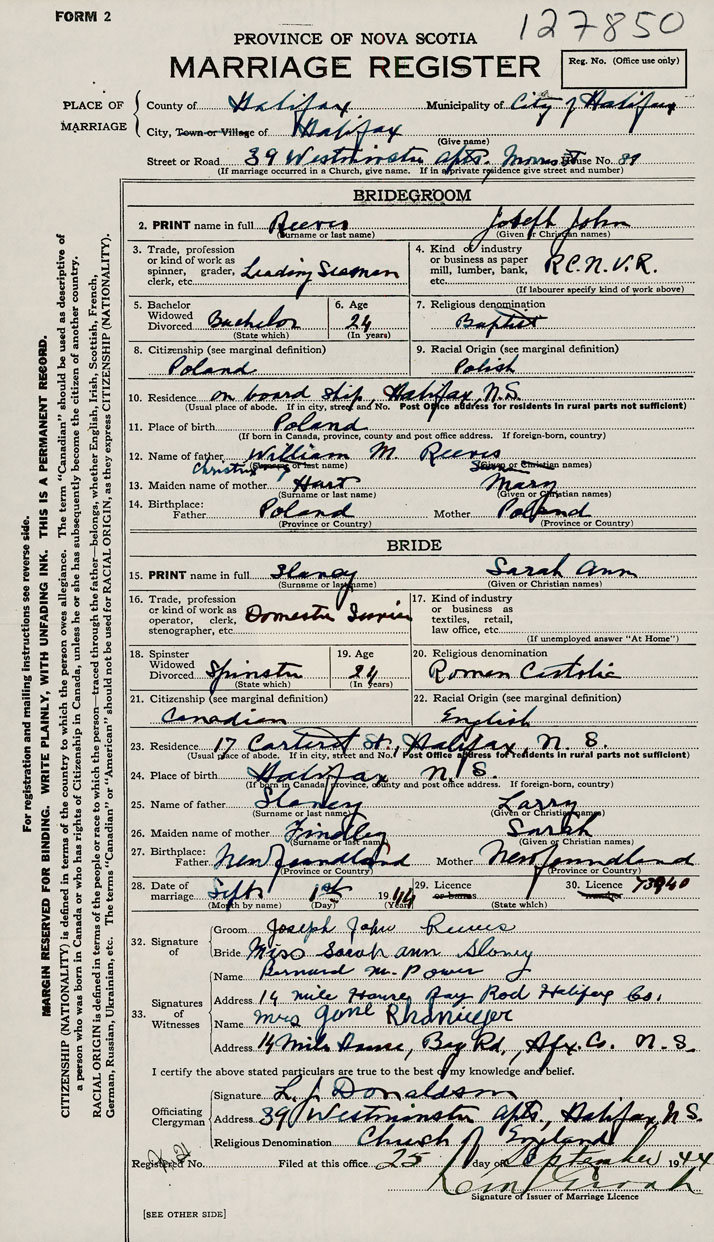 FORM 2
127850
PROVINCE OF NOVA SCOTIA
MARRIAGE REGISTER
Reg. No. (Office use only)
PLACE OF MARRIAGE
County of Halifax Municipality of City of Halifax
City, Town or Village of Halifax
(Give name)
Street or Road 39 Westminster Apts. Morris St House No. 89
(If marriage occurred in a Church, give name. If in a private residence give street and number)
BRIDEGROOM
2. PRINT name in full Reeves Joseph John
(Surname or last name) (Given or Christian names)
3. Trade, profession or kind of work as spinner, grader, clerk, etc. Leading Seaman
4. Kind of industry or business as paper mill, lumber, bank, etc. R.C.N.V.R.
(If labourer specify kind of work above)
5. Bachelor Widowed Divorced Bachelor
(State which)
6. Age 24
(In years)
7. Religious denomination Baptist
8. Citizenship (see marginal definition) Poland
9. Racial Origin (see marginal definition) Polish
10. Residence on board ship, Halifax, N.S.
(Usual place of abode. If in city, street and No. Post Office address for residents in rural parts not sufficient)
11. Place of birth Poland
(If born in Canada, province, county and post office address. If foreign-born, country)
12. Name of father William M. Reeves
(Surname or last name) (Given or Christian names)
Christian
13. Maiden name of mother Hart Mary
(Surname or last name) (Given or Christian names)
14. Birthplace: Father Poland Mother Poland
(Province or Country)
BRIDE
15. PRINT name in full Slaney Sarah Ann
(Surname or last name) (Given or Christian names)
16. Trade, profession or kind of work as operator, clerk, stenographer, etc. Domestic Service
17. Kind of industry or business as textiles, retail, law office, etc.
(If unemployed answer "At Home")
18. Spinster Widowed Divorced Spinster
(State which)
19. Age 24
(In years)
20. Religious denomination Roman Catholic
21. Citizenship (see marginal definition) Canadian
22. Racial Origin (see marginal definition) English
23. Residence 17 Carteret St., Halifax, N. S.
(Usual place of abode. If in city, street and No. Post Office address for residents in rural parts not sufficient)
24. Place of birth Halifax N. S.
(If born in Canada province, county and post office address. If foreign-born, country)
25. Name of father Slaney Larry
(Surname or last name) (Given or Christian names)
26. Maiden name of mother Findley Sarah
(Surname or last name) (Given or Christian names)
27. Birthplace: Father Newfoundland Mother Newfoundland
(Province or Country)
28. Date of marriage Sept 1st 1944
(Month by name) (Day) (Year)
29. Licence or banns
(State which)
30. Licence 73940
32. Signature of
Groom Joseph John Reeves
Bride Miss Sarah ann Slaney
33. Signatures of Witnesses
Name Bernard M. Power
Address 14 mile House Bay Rod Halifax Co.
Name Mrs
Address 14 Mile House, Bay Rd., Hfx. Co. N. S.
I certify the above stated particulars are true to the best of my knowledge and belief.
Officiating Clergyman
Signature L. J. Donaldson
Address 39 Westminster Apts., Halifax, N.S.
Religious Denomination Church of England
Registered No. Filed at this office 25 day of September 1944
Signature of Issuer of Marriage Licence
[SEE OTHER SIDE]
For registration and mailing instructions see reverse side.
MARGIN RESERVED FOR BINDING. WRITE PLAINLY, WITH UNFADING INK. THIS IS A PERMANENT RECORD.
CITIZENSHIP (NATIONALITY) is defined in terms of the country to which the person owes allegiance. The term "Canadian" should be used as descriptive of
a person who was born in Canada or who has rights of Citizenship in Canada, unless he or she has subsequently become the citizen of another country.
RACIAL ORIGIN is defined in terms of the people or race to which the person—traced through the father—belongs, whether English, Irish, Scottish, French,
German, Russian, Ukrainian, etc. The terms "Canadian" or "American" should not be used for RACIAL ORIGIN, as they express CITIZENSHIP (NATIONALITY).